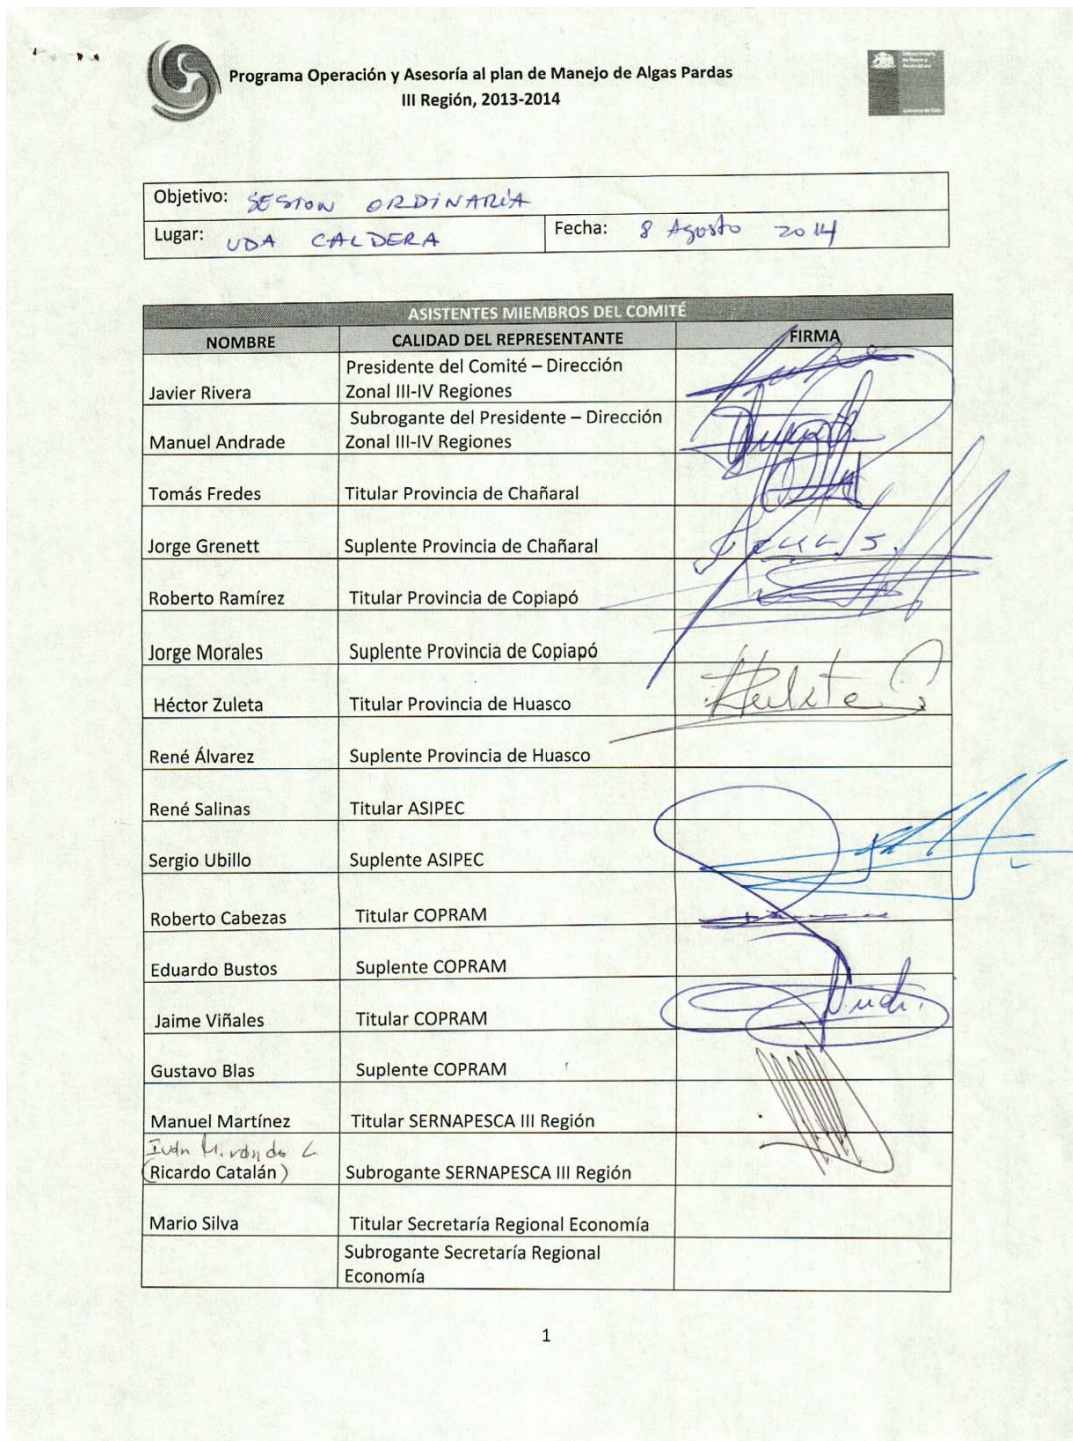 Programa Operación y Asesoría al plan de Manejo de Algas Pardas
III Región, 2013-2014
Objetivo: SESION ORDINARIA
Lugar: UDA CALDERA Fecha: 8 Agosto 2014
ASISTENTES MIEMBROS DEL COMITÉ
NOMBRE CALIDAD DEL REPRESENTANTE FIRMA
Presidente del Comité – Dirección
Javier Rivera Zonal III-IV Regiones
Subrogante del Presidente – Dirección
Manuel Andrade Zonal III-IV Regiones
Tomás Fredes Titular Provincia de Chañaral
Jorge Grenett Suplente Provincia de Chañaral
Roberto Ramírez Titular Provincia de Copiapó
Jorge Morales Suplente Provincia de Copiapó
Héctor Zuleta Titular Provincia de Huasco
René Álvarez Suplente Provincia de Huasco
René Salinas Titular ASIPEC
Sergio Ubillo Suplente ASIPEC
Roberto Cabezas Titular COPRAM
Eduardo Bustos Suplente COPRAM
Jaime Viñales Titular COPRAM
Gustavo Blas Suplente COPRAM
Manuel Martínez Titular SERNAPESCA III Región
Iván Miranda
(Ricardo Catalán) Subrogante SERNAPESCA III Región
Mario Silva Titular Secretaría Regional Economía
Subrogante Secretaría Regional
Economía
1